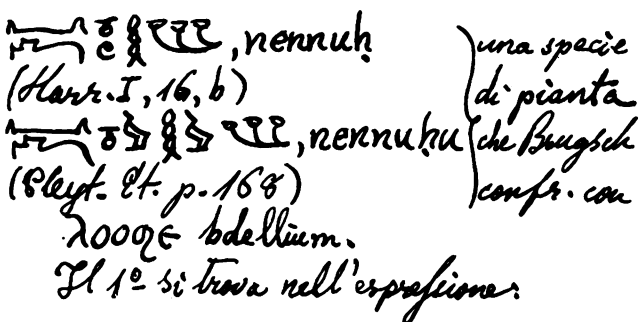 , nennuḥ
(Harr. I, 16, b)
, nennuḥu
(Pleyt. Et. p. 168)
una specie
di pianta
che Brugsch
confr. con
bdellium.
Il 1º si trova nell'espressione: